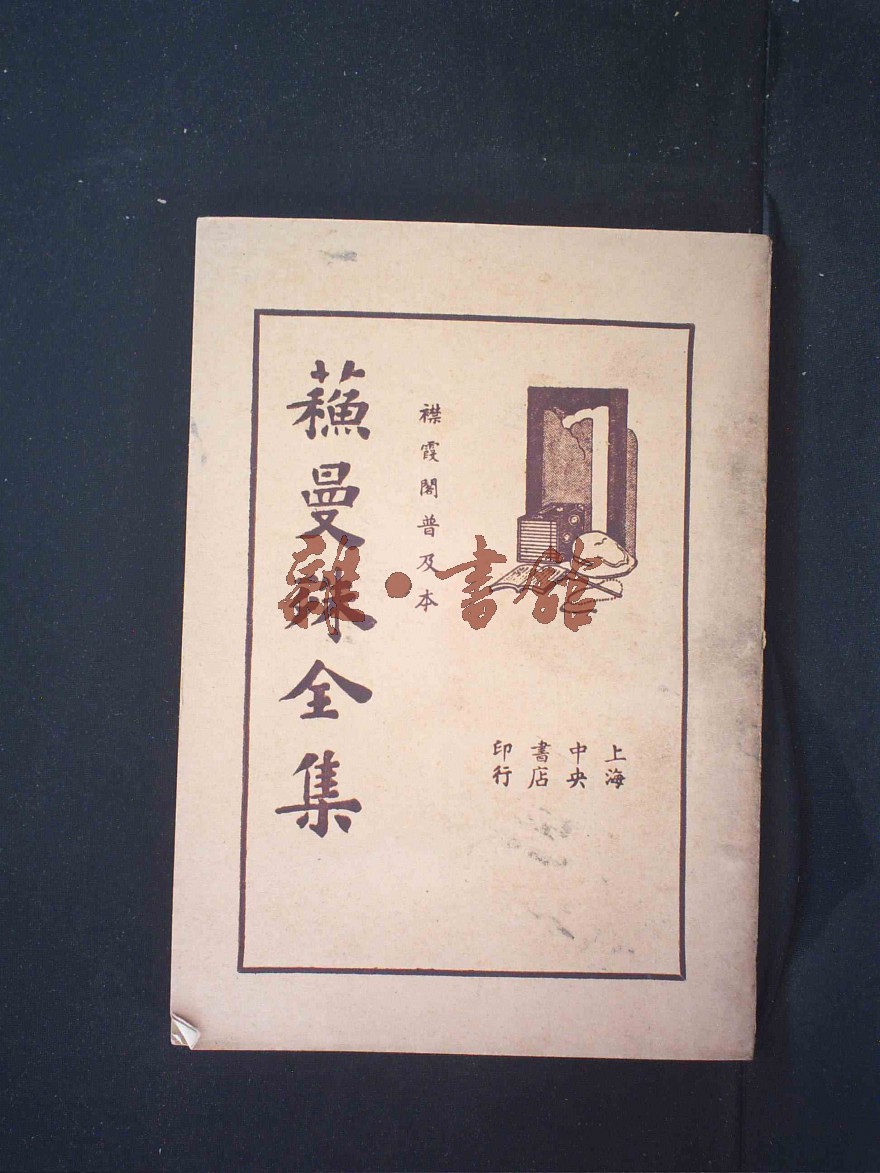 上海
中央
書店
印行
襟霞閣普及本
蘓曼殊全集
雜·書館